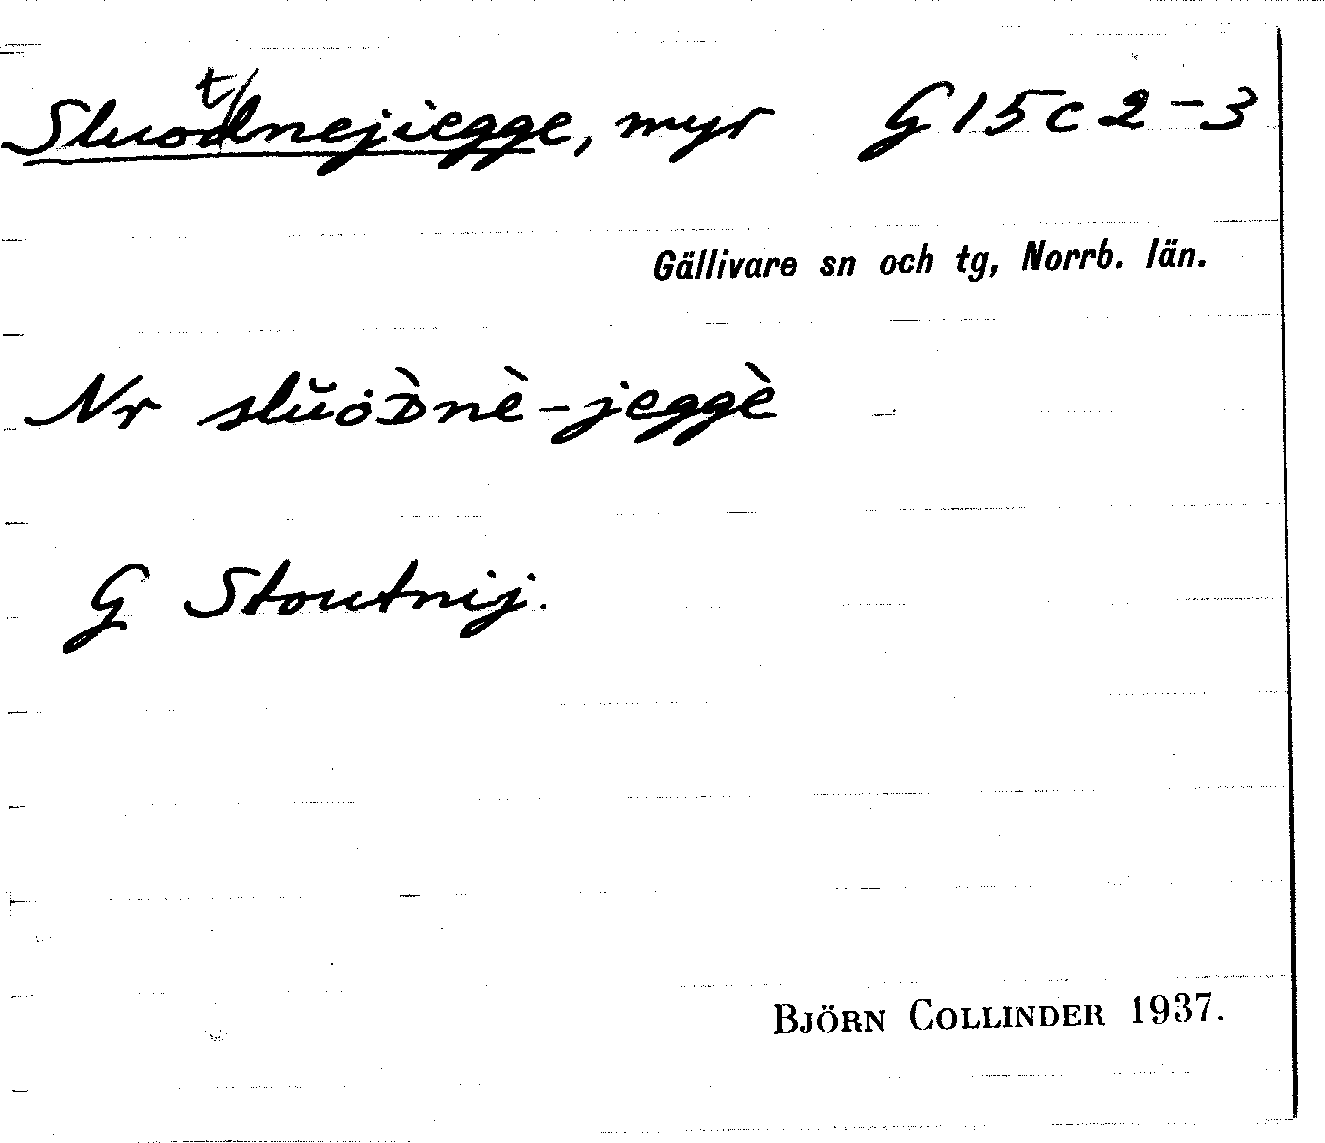 Sluotnejiegge, myr G15c2-3
Gällivare sn och tg, Norrb. län.
Nr slŭȯᴅ̀nè-jeggè
G Stoutnij.
BJÖRN COLLINDER 1937.